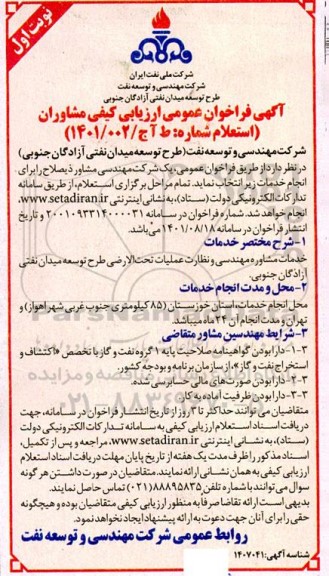 نوبت اول
شرکت ملی نفت ایران
شرکت مهندسی و توسعه نفت
طرح توسعه میدان نفتی آزادگان جنوبی
آگهی فراخوان عمومی ارزیابی کیفی مشاوران
(استعلام شماره: ط آ ج/۱۴۰۱/۰۰۲)
شرکت مهندسی و توسعه نفت (طرح توسعه میدان نفتی آزادگان جنوبی)
در نظر دارد از طریق فراخوان عمومی، یک شرکت مهندسی مشاور ذیصلاح را برای
انجام خدمات زیر انتخاب نماید. تمام مراحل برگزاری استعلام، از طریق سامانه
تدارکات الکترونیکی دولت (ستاد)، به نشانی اینترنتی www.setadiran.ir
انجام خواهد شد. شماره فراخوان در سامانه ۲۰۰۱۰۹۳۳۱۴۰۰۰۰۳۱ و تاریخ
انتشار فراخوان در سامانه ۱۴۰۱/۰۸/۱۸ می‌باشد.
۱- شرح مختصر خدمات
خدمات مشاوره مهندسی و نظارت عملیات تحت‌الارضی طرح توسعه میدان نفتی
آزادگان جنوبی.
۲- محل و مدت انجام خدمات
محل انجام خدمات، استان خوزستان (۸۵ کیلومتری جنوب غربی شهر اهواز) و
تهران و مدت انجام آن ۲۴ ماه میباشد.
۳- شرایط مهندسین مشاور متقاضی
۳-۱- دارا بودن گواهینامه صلاحیت پایه ۱ گروه نفت و گاز با تخصص «اکتشاف و
استخراج نفت و گاز»، از سازمان برنامه و بودجه کشور.
۳-۲- دارا بودن صورت های مالی حسابرسی شده.
۳-۳- دارا بودن ظرفیت آماده به کار.
متقاضیان می توانند حداکثر تا ۳ روز از تاریخ انتشار فراخوان در سامانه، جهت
دریافت اسناد استعلام ارزیابی کیفی به سامانه تدارکات الکترونیکی دولت
(ستاد)، به نشانی اینترنتی www.setadiran.ir، مراجعه و پس از تکمیل،
اسناد مذکور را ظرف مدت یک هفته از تاریخ پایان مهلت دریافت اسناد استعلام
ارزیابی کیفی به همان نشانی ارائه نمایند. متقاضیان در صورت داشتن هر گونه
سوال می توانند با شماره تلفن ۸۸۸۹۵۸۳۵ (۰۲۱) تماس حاصل نمایند.
بدیهی است ارائه تقاضا صرفا به منظور ارزیابی کیفی متقاضیان بوده و هیچگونه
حقی را برای آنان جهت دعوت به ارائه پیشنهاد ایجاد نخواهد نمود.
روابط عمومی شرکت مهندسی و توسعه نفت
شناسه آگهی: ۱۴۰۷۰۴۱